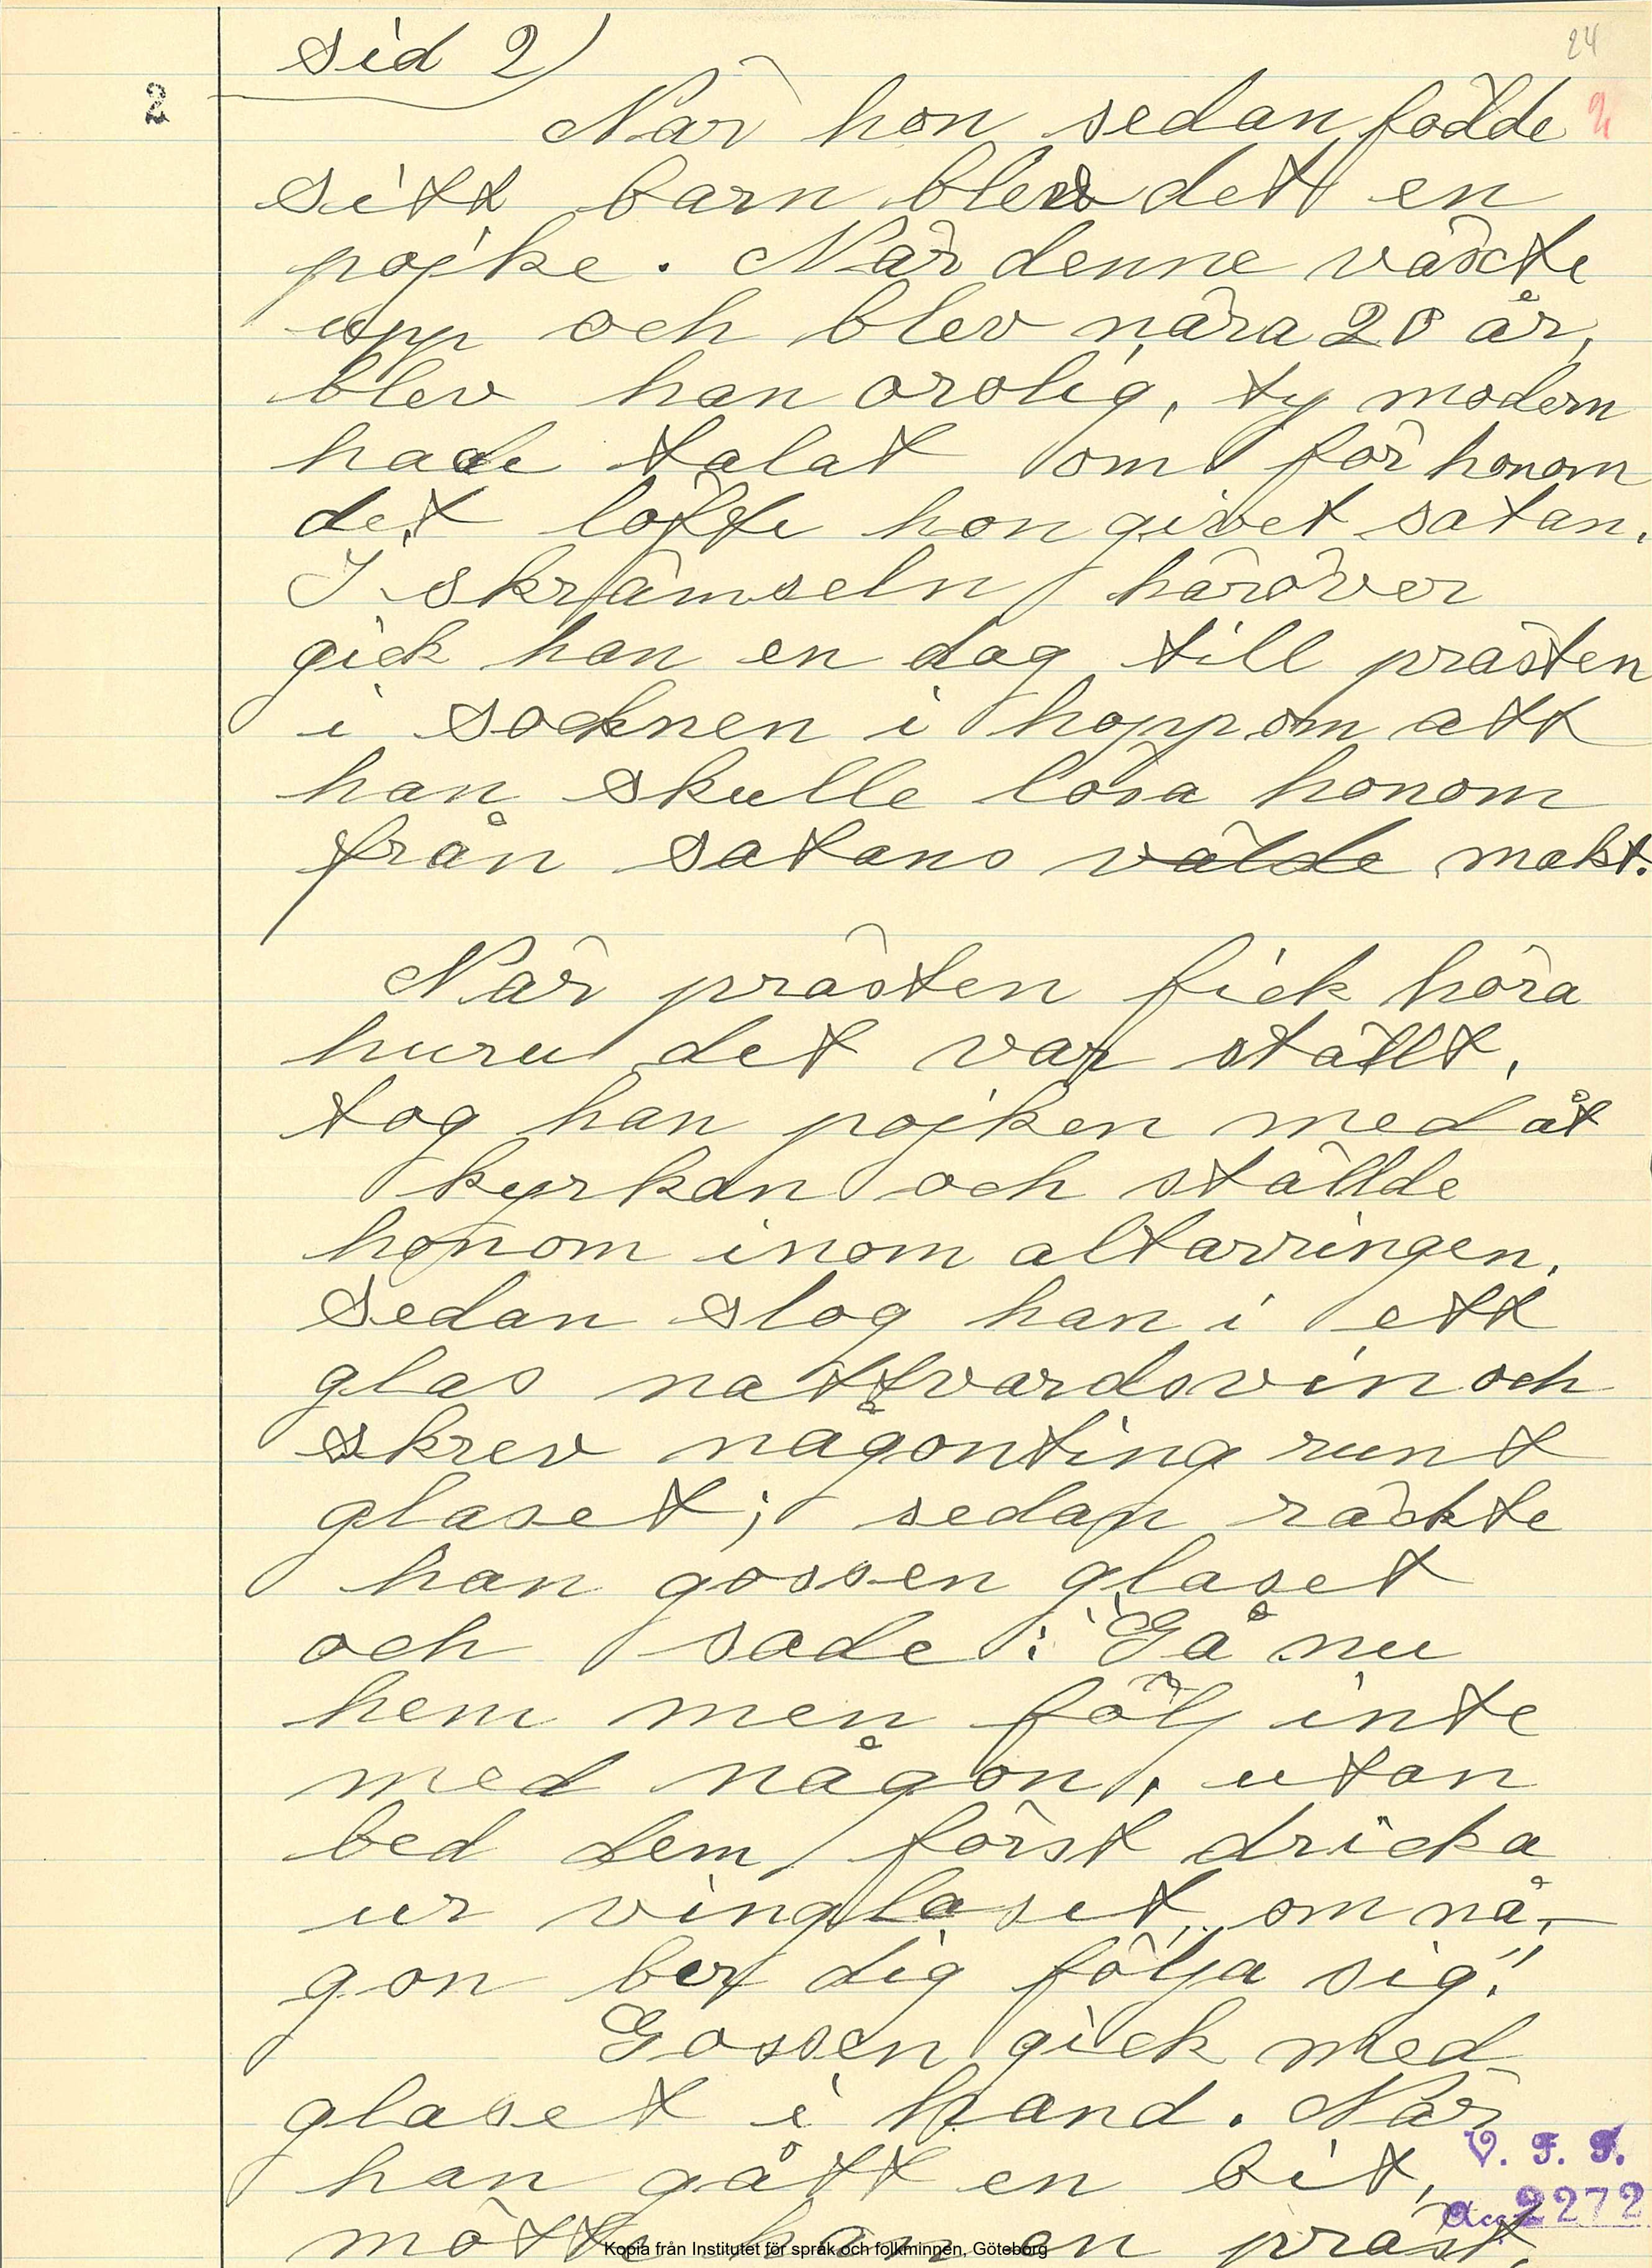 sid 2)
24
2
2
När hon sedan födde
sitt barn blev det en
pojke. När denne växte
upp och blev nära 20 år,
blev han orolig, ty modern
hade talat om för honom
det löfte hon givet satan.
I skrämseln häröver
gick han en dag till prästen
i socknen i hopp om att
han skulle lösa honom
från satans välde makt.
När prästen fick höra
huru det var ställt,
tog han pojken med åt
kyrkan och ställde
honom inom altarringen.
Sedan slog han i ett
glas nattvardsvin och
skrev någonting runt
glaset; sedan räckte
han gossen glaset
och sade: "Gå nu
hem men följ inte
med någon, utan
bed dem först dricka
ur vinglaset, om nå-
gon ber dig följa sig."
Gossen gick med
glaset i hand. När
han gått en bit,
mötte han en präst,
V. F. F.
Acc 2272
Kopia från Institutet för språk och folkminnen, Göteborg